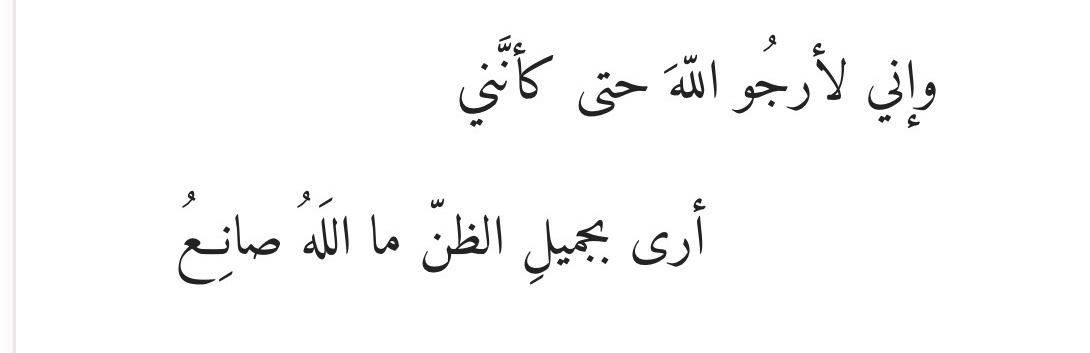 وإني لأرجُو اللّهَ حتى كأنَّني
أرى بجميلِ الظنّ ما اللَهُ صانِـعُ